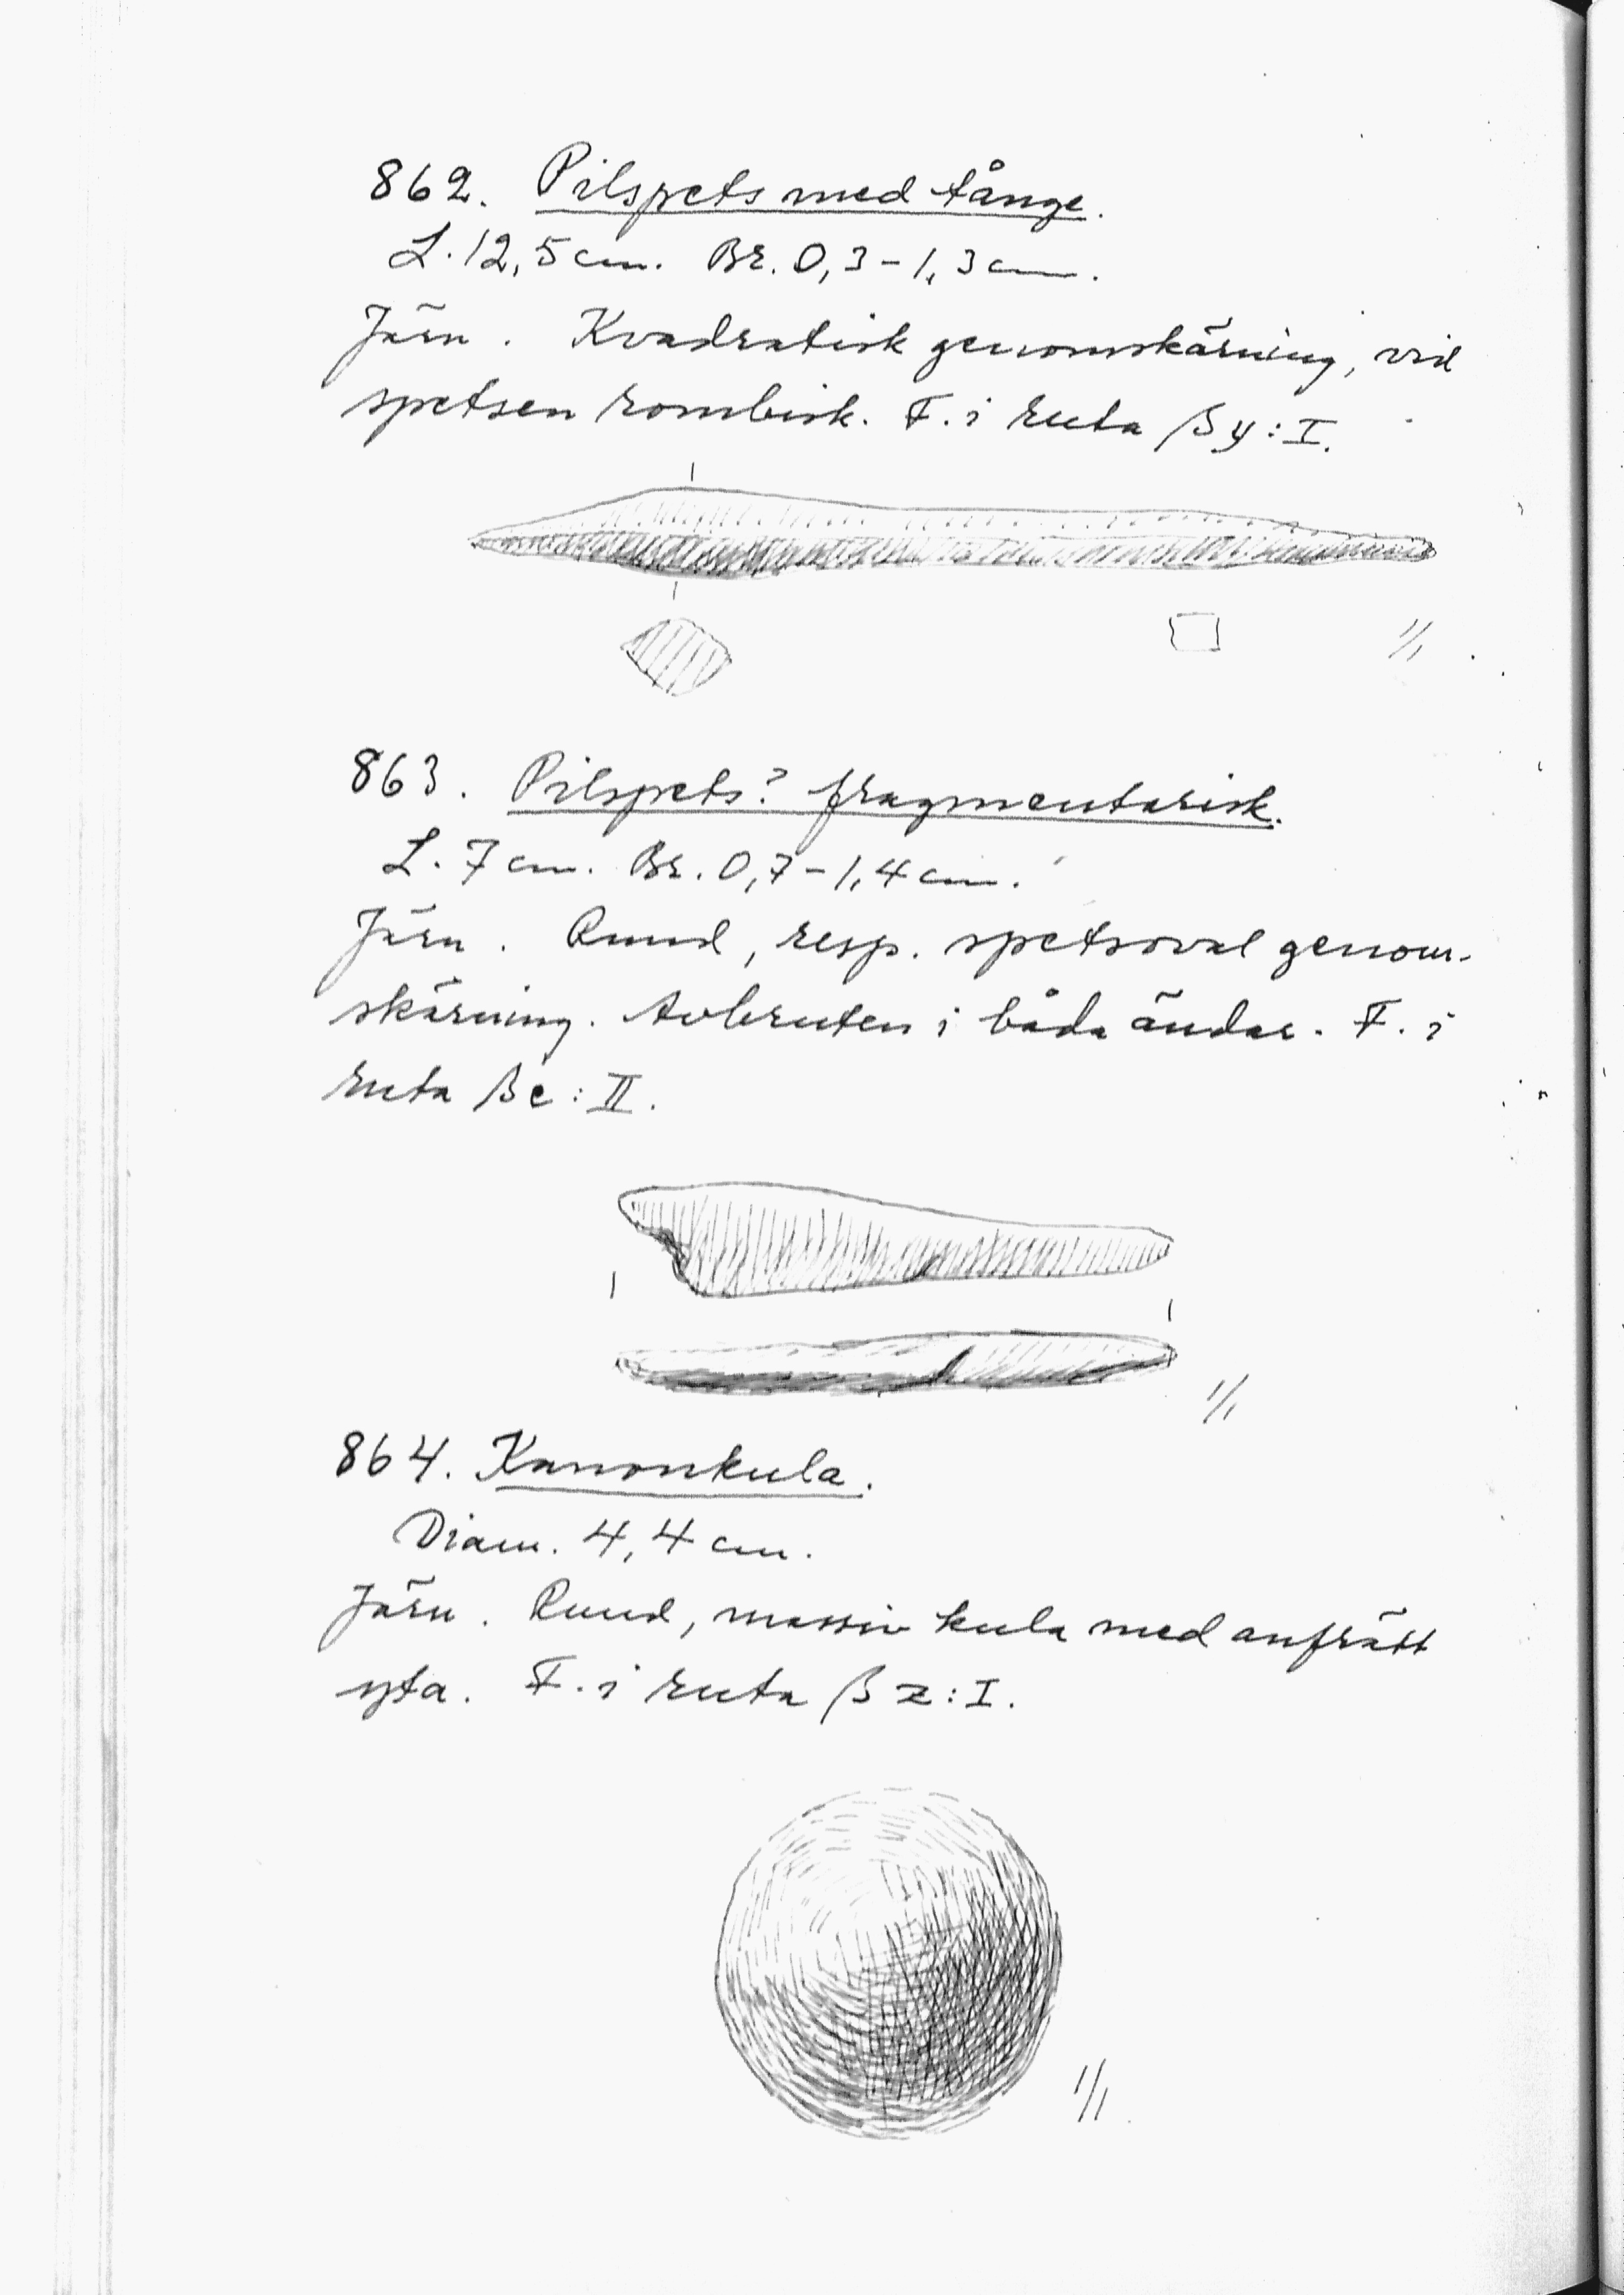 862. Pilspets med tånge.
L. 12,5 cm. Br. 0,3-1,3 cm.
Järn. Kvadratisk genomskärning, vid
spetsen rombisk. F. i ruta ßy:I.
1/1
863. Pilspets? fragmentarisk.
L. 7 cm. Br. 0,7-1,4 cm.
Järn. Rund, resp. spetsoval genom-
skärning. Avbruten i båda ändar. F. i
ruta ßc:II.
1/1
864. Kanonkula.
Diam. 4,4 cm.
Järn. Rund, massiv kula med anfrätt
yta. F. i ruta ßz:I.
1/1